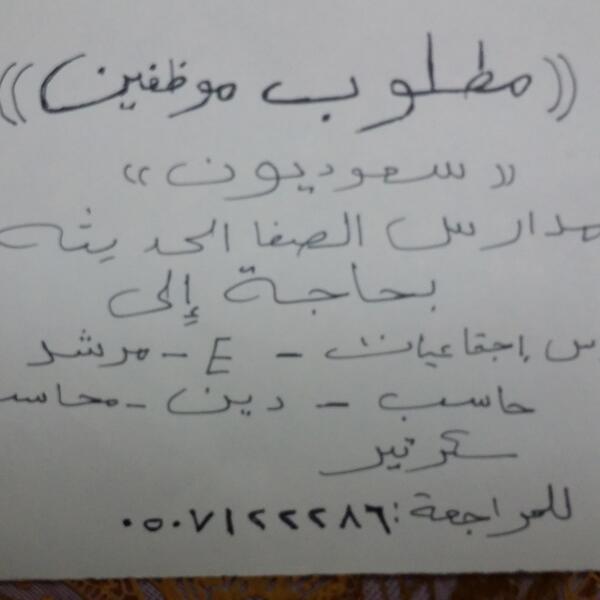 ((مطلوب موظفين))
«سعوديون»
مدارس الصفا الحديثه
بحاجة إلى
إجتماعيات - E - مرشد
حاسب - دين - محاسب
سكرتير
للمراجعة: ٠٥٠٧١٢٢٢٨٦